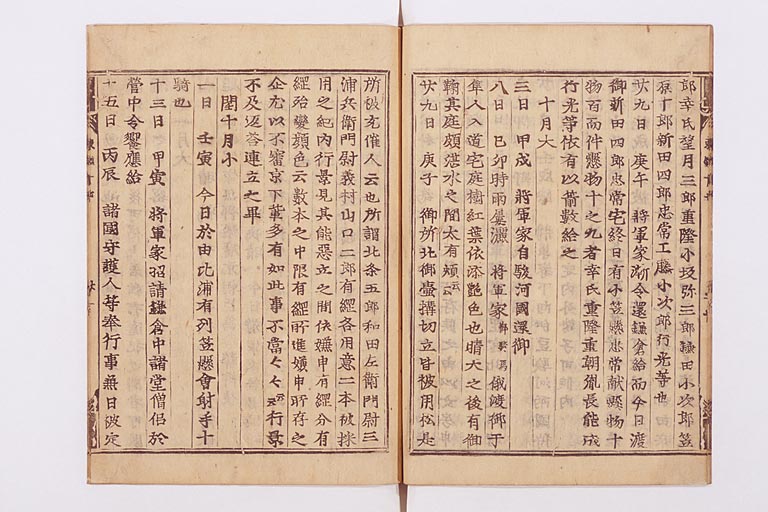 郎幸氏望月三郎重隆小坂弥三郎藤田小次郎笠
原十郎新田四郎忠常工藤小次郎行光等也
廿九日 庚午 將軍家漸令還鎌倉給而今日渡
御新田四郎忠常宅終日有小笠懸忠常献懸物十
物百兩件懸物十之九者幸氏重隆重朝胤長能成
行光等依有以箭數給之
十月大
三日 甲戌 將軍家自駿河國還御
八日 己卯時雨屢灑 將軍家俄渡御于
隼人入道宅庭樹紅葉依添艶色也晴天之後有御
鞠其庭頗湛水之間太有煩云云
廿九日 庚子 御所北御壷撰切立皆被用松是
所被充催人云也所謂北条五郎和田左衛門尉三
浦兵衛門尉義村山口二郎有經各用意二本被採
用之紀内行景見其能惡立之間依嫌申有經分有
經殆變顔色云數本之中限有經所進嫌申所存之
企尤以不審京下輩多有如此事不當々々云云行景
不及返答連立之畢
閏十月小
一日 壬寅 今日於由比浦有列笠懸會射手十
騎也
十三日 甲寅 將軍家招請鎌倉中諸堂僧侶於
營中令饗應給
十五日 丙辰 諸國守護人等奉行事兼日被定